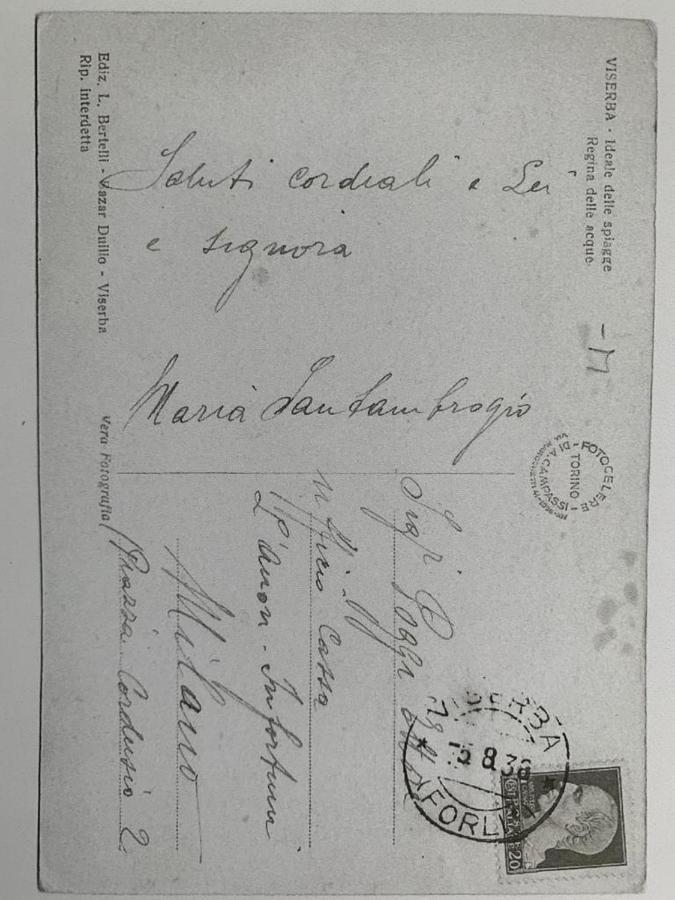 VISERBA - Ideale delle spiagge
Regina delle acque.
Saluti cordiali a Lei
e signora
Maria Santambrogio
FOTOCELERE
DI A. CAMPASSI
TORINO
Sigr Poggi
ufficio Cassa
L'Anon. Infortuni
Milano
(Piazza Cordusio 2.
VISERBA
5.8.36
FORLI
POSTE
ITALIANE
20
Ediz. L. Bertelli - Bazar Duilio - Viserba
Rip. interdetta
Vera Fotografia